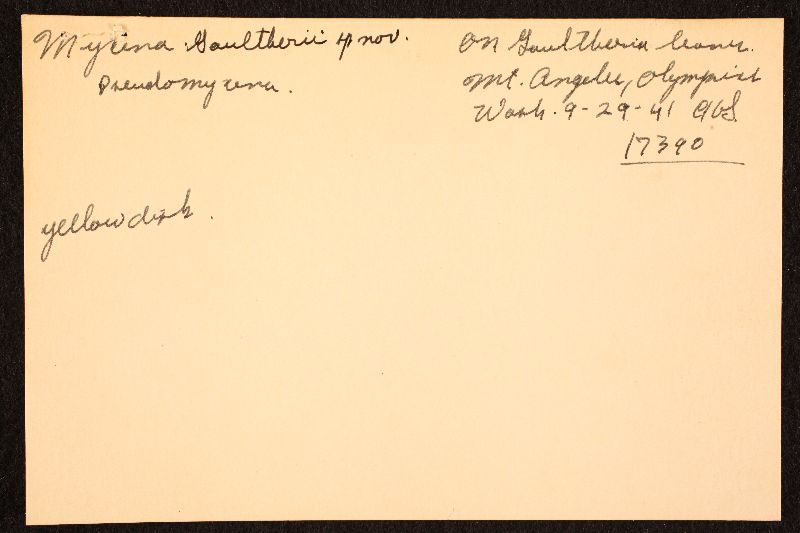 Myxina Gaultherii sp nov.
Pseudomyxena.
On Gaultheria leaves.
Mt. Angeles, Olympics
Wash. 9-29-41 AHS.
17390
yellow disk.